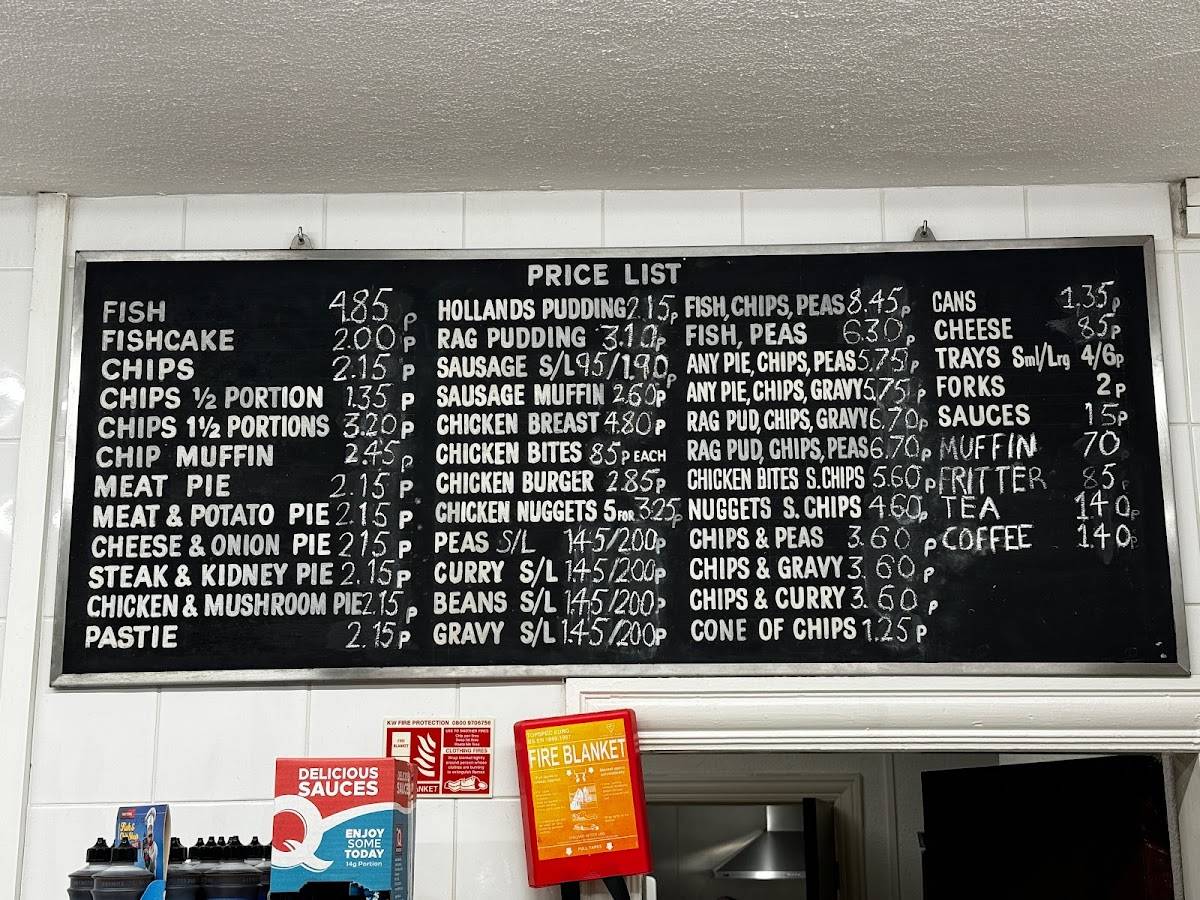 PRICE LIST
FISH 4.85p
FISHCAKE 2.00p
CHIPS 2.15p
CHIPS ½ PORTION 1.35p
CHIPS 1½ PORTIONS 3.20p
CHIP MUFFIN 2.45p
MEAT PIE 2.15p
MEAT & POTATO PIE 2.15p
CHEESE & ONION PIE 215p
STEAK & KIDNEY PIE 2.15p
CHICKEN & MUSHROOM PIE 2.15p
PASTIE 2.15p
HOLLANDS PUDDING 2.15p
RAG PUDDING 3.10p
SAUSAGE S/L 95/1.90p
SAUSAGE MUFFIN 2.60p
CHICKEN BREAST 4.80p
CHICKEN BITES 85p EACH
CHICKEN BURGER 2.85p
CHICKEN NUGGETS 5 FOR 3.25p
PEAS S/L 145/200p
CURRY S/L 1.45/200p
BEANS S/L 1.45/200p
GRAVY S/L 1.45/200p
FISH, CHIPS, PEAS 8.45p
FISH, PEAS 6.30p
ANY PIE, CHIPS, PEAS 5.75p
ANY PIE, CHIPS, GRAVY 5.75p
RAG PUD, CHIPS, GRAVY 6.70p
RAG PUD, CHIPS, PEAS 6.70p
CHICKEN BITES S.CHIPS 5.60p
NUGGETS S. CHIPS 4.60p
CHIPS & PEAS 3.60p
CHIPS & GRAVY 3.60p
CHIPS & CURRY 3.60p
CONE OF CHIPS 1.25p
CANS 1.35p
CHEESE 85p
TRAYS Sml/Lrg 4/6p
FORKS 2p
SAUCES 15p
MUFFIN 70
FRITTER 85
TEA 140p
COFFEE 140p
KW FIRE PROTECTION 0800 9706756
CLOTHING FIRES
DELICIOUS
SAUCES
ENJOY
SOME
TODAY
14g Portion
FIRE BLANKET
PULL TAPES